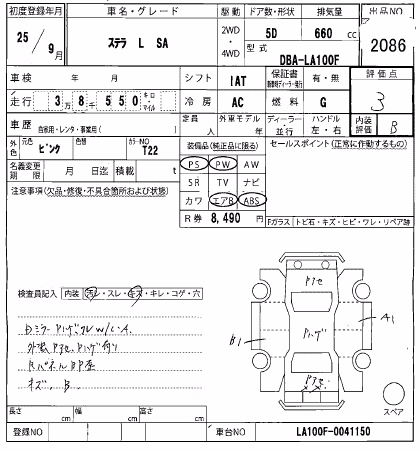 初度登録年月 車名・グレード 駆動 ドア数・形状 排気量 出品NO
25/9月 ステラ L SA 2WD・4WD 5D 660cc 2086
型式 DBA-LA100F
車検 年 月 シフト IAT 保証書 有・無 評価点
走行 3万8千550キロ・マイル 冷房 AC 燃料 G 3
車歴 自家用・レンタ・事業用( ) 定員 人 外車モデル 年 ディーラー・並行 ハンドル 左・右 内装評価 B
外色 元色 ピンク 色替 カラーNO T22 装備品(純正品に限る) セールスポイント(正常に動作するもの)
名義変更期限 月 日迄 積載 t PS PW AW
注意事項(欠品・修復・不具合箇所および状態) SR TV ナビ
カワ エアB ABS
R券 8,490 円 Fガラス トビ石・キズ・ヒビ・ワレ・リペア跡
検査員記入 内装 汚レ・スレ・キズ・キレ・コゲ・穴
Pアセ
A1
B1
Pハゲ
外装Pアセ、Pハゲ有り
キズ、B.
Pアセ
スペア
長さ cm 幅 cm 高さ cm
登録NO 車台NO LA100F-0041150